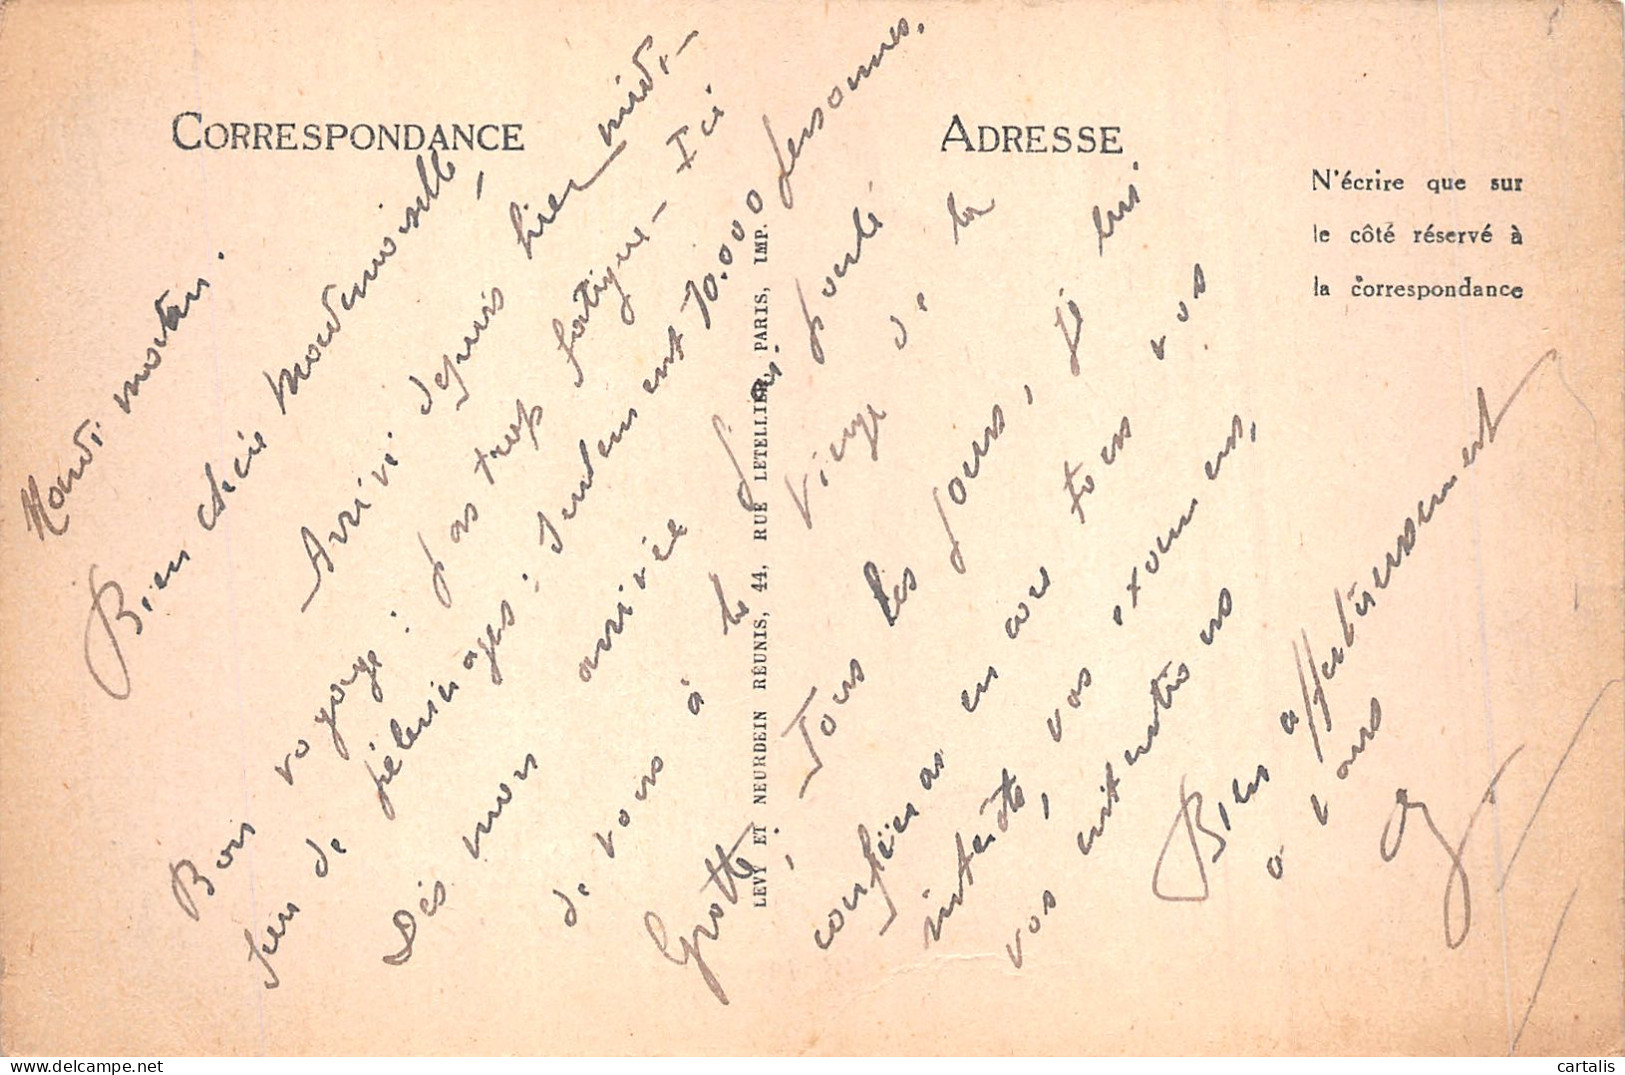 CORRESPONDANCE
ADRESSE
N'écrire que sur
le côté réservé à
la correspondance
Mardi matin.
Bien chère Mademoiselle,
Arrivé depuis hier midi –
Bon voyage : pas trop fatigué – Ici
peu de pélerinages : seulement 10.000 personnes.
Dès mon arrivée j'ai parlé
de vous à la Vierge de la
Grotte, Tous les jours, je lui
confierai encore tous vos
intérêts, vos examens,
vos intentions
Bien affectueusement
à vous
LEVY ET NEURDEIN RÉUNIS, 44, RUE LETELLIER, PARIS, IMP.
cartalis